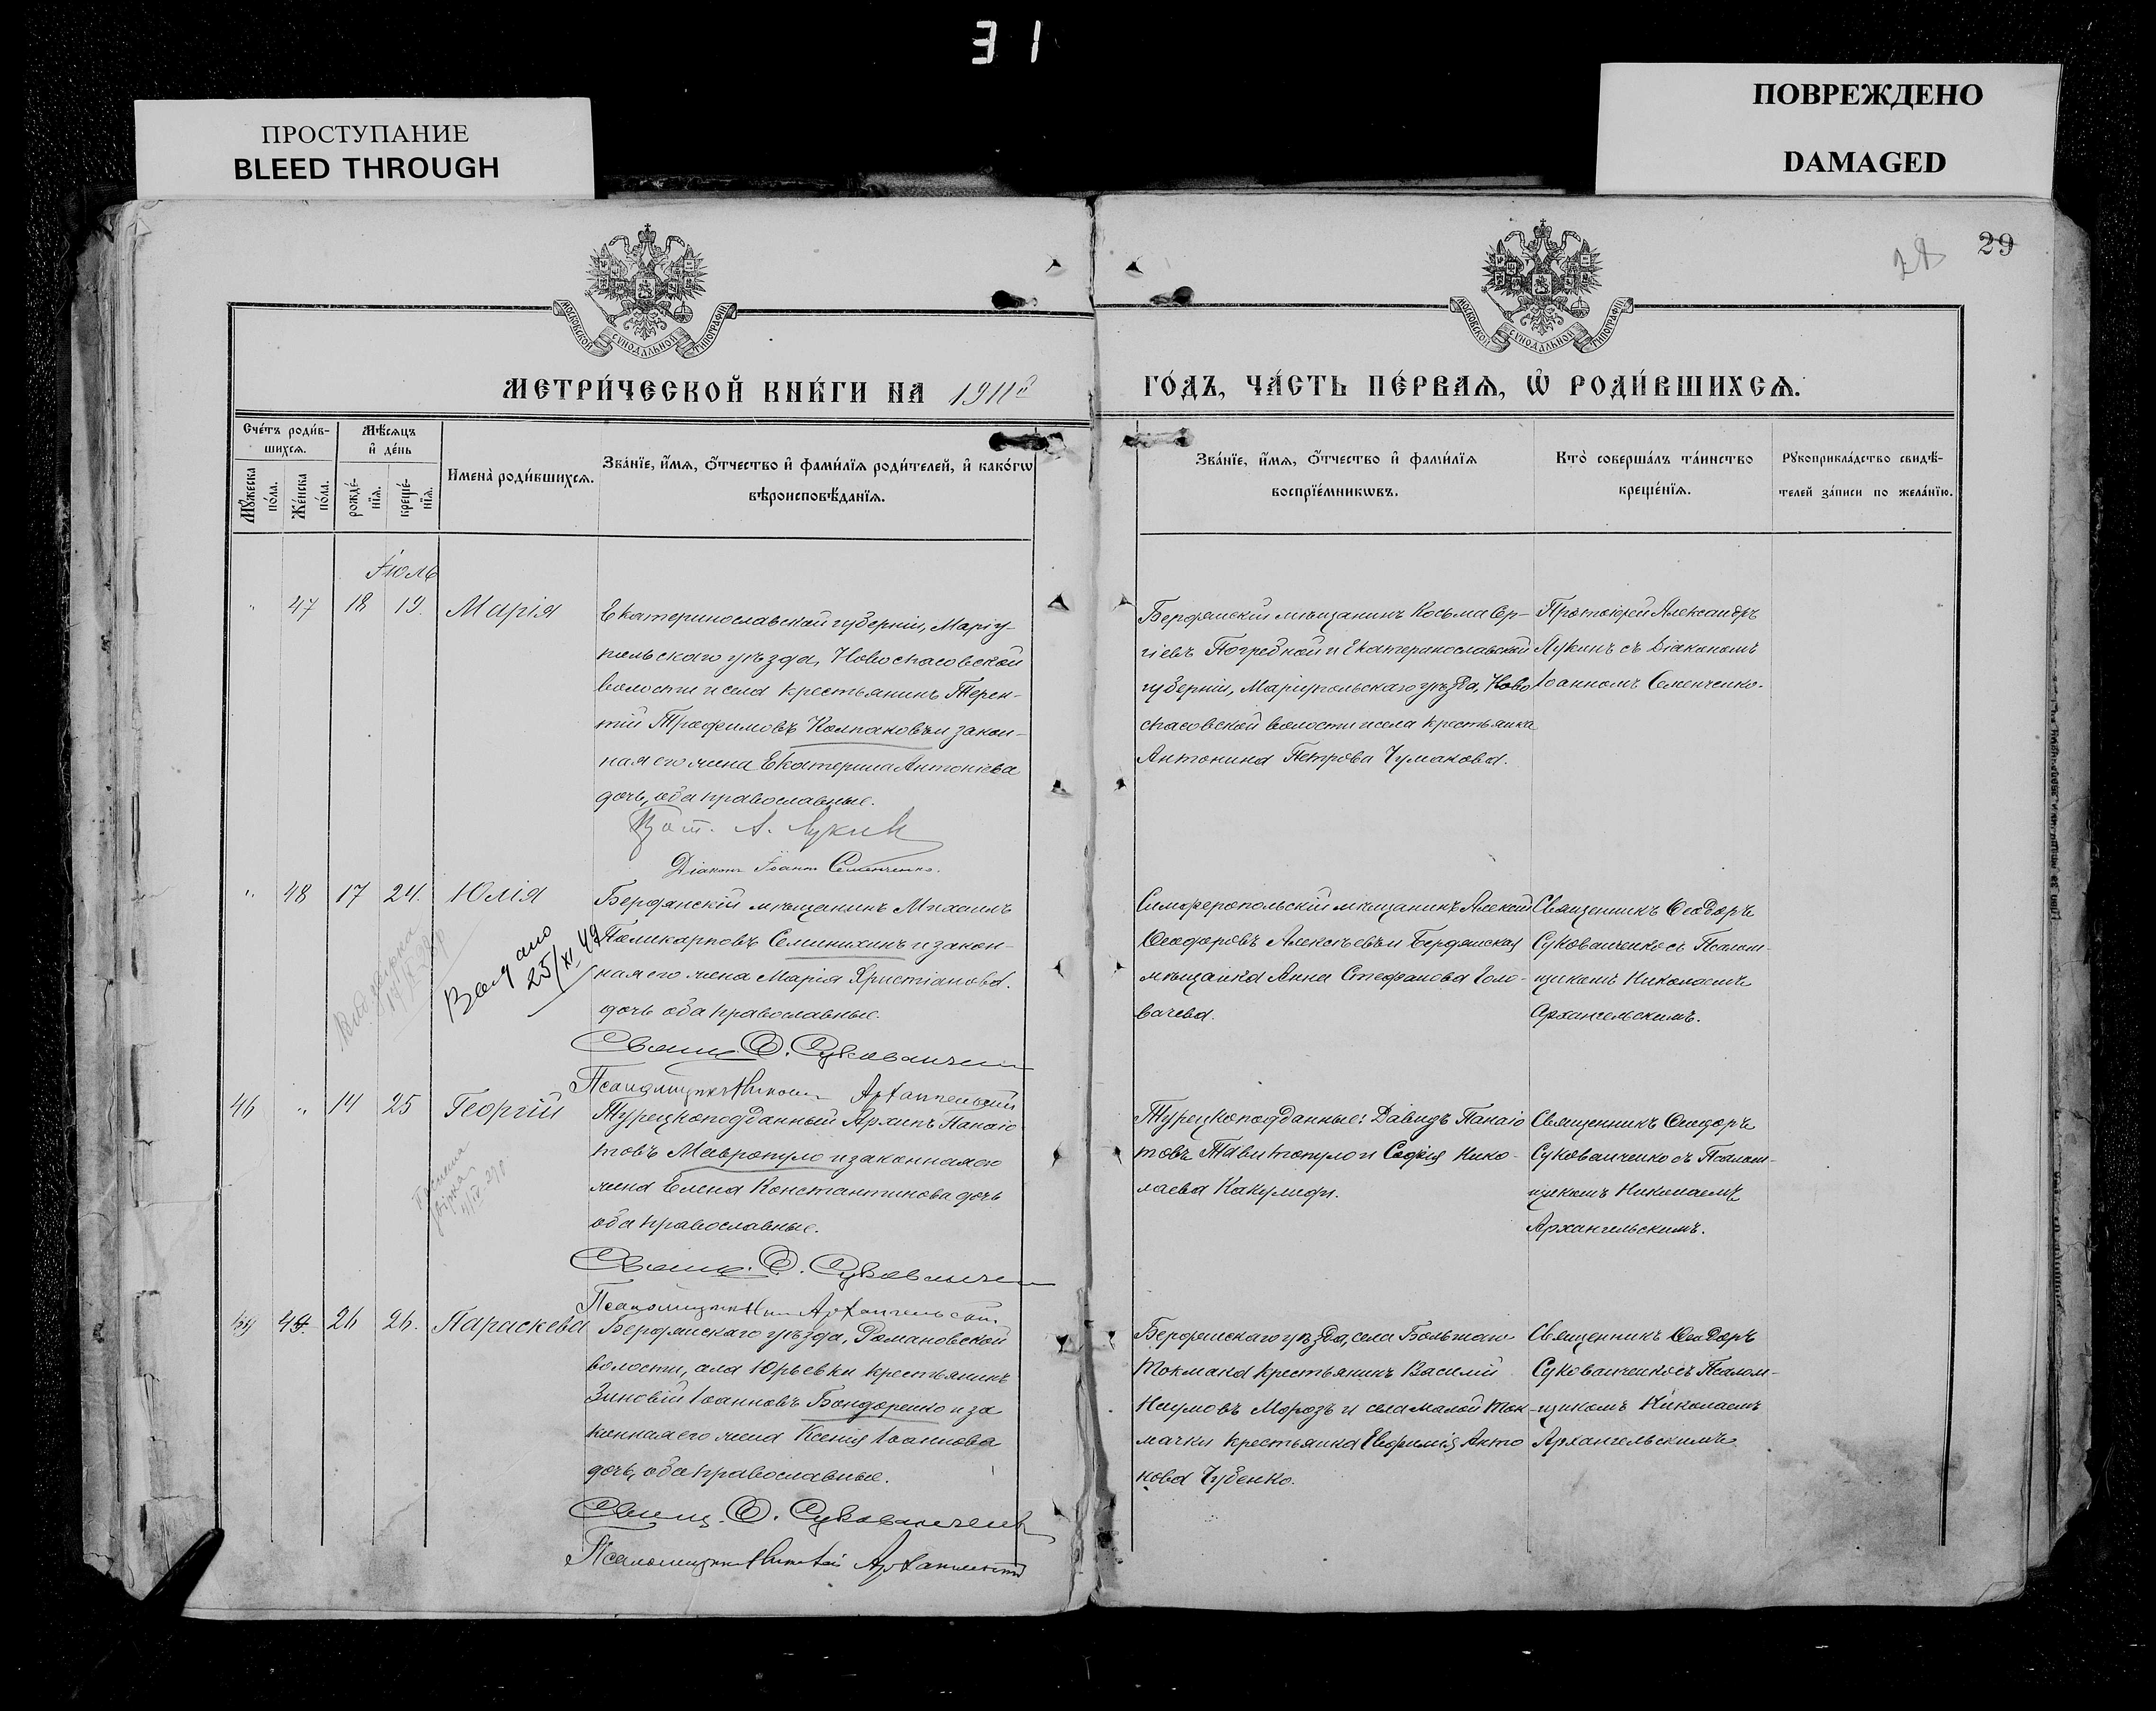 31
ПРОСТУПАНИЕ
BLEED THROUGH
ПОВРЕЖДЕНО
DAMAGED
29
МОСКОВСКОЙ СѴНОДАЛЬНОЙ ТИПОГРАФІИ
МОСКОВСКОЙ СѴНОДАЛЬНОЙ ТИПОГРАФІИ
МЕТРИ́ЧЕСКОЙ КНИ́ГИ НА 1911й
ГО́ДЪ, ЧА́СТЬ ПЕ́РВАѦ, Ѡ РОДИ́ВШИХСѦ.
Сче́тъ роди́в-
шихсѧ.
Мꙋ́жеска
по́ла.
Же́нска
по́ла.
Мѣ́сѧцъ
и҆ де́нь
рожде́-
нїѧ.
креще́-
нїѧ.
И҆мена̀ роди́вшихсѧ.
Зва́нїе, и҆́мѧ, ѻ҆́тчество и҆ фами́лїѧ роди́телей, и҆ како́гѡ
вѣроисповѣ́данїѧ.
Зва́нїе, и҆́мѧ, ѻ҆́тчество и҆ фами́лїѧ
воспрїе́мникѡвъ.
Кто̀ соверша́лъ та́инство
креще́нїѧ.
Рꙋкоприкла́дство свидѣ́-
телей за́писи по жела́нїю.
Іюль
" 47 18 19. Марія
Екатеринославской губерніи, Маріу-
польского уѣзда, Новоспасовской
волости и села крестьянинъ Терен-
тій Трофимовъ Колпаковъ и закон-
ная его жена Екатерина Антоніева
дочь, оба православные.
Прот. А. Лукин
Діаконъ Іоаннъ Семенченко.
Бердянскій мѣщанинъ Косьма Сер-
гіевъ Погребной и Екатеринославской
губерніи, Маріупольскаго уѣзда, Ново
спасовской волости и села крестьянка
Антонина Петрова Чумакова.
Протоіерей Александръ
Лукинъ съ Діакономъ
Іоанномъ Семенченко.
" 48 17 24. Юлія
Бердянскій мѣщанинъ Михаилъ
Поликарповъ Семинихинъ и закон-
ная его жена Марія Христіанова.
дочь оба православные.
Выдано
25/XI 49
Свящ. Ѳ. Сукованченко
Псаломщикъ Николай Архангельскій
Симферопольскій мѣщанинъ Алексій
Ѳеодоровъ Алексѣевъ и Бердянская
мѣщанка Анна Стефанова Голо-
вачева.
Священникъ Ѳеодоръ
Сукованченко съ Псалом-
щикомъ Николаемъ
Архангельскимъ.
46 " 14 25 Георгій
Турецкоподданный Архипъ Панаіо
товъ Мавропуло и законная его
жена Елена Константинова дочь
оба православные.
Свящ. Ѳ. Сукованченко
Псаломщикъ Ник. Архангельскій
Турецкоподданные: Давидъ Панаіо
товъ Тавитопуло и Софія Нико-
лаева Какулиди.
Священникъ Ѳеодоръ
Сукованченко съ Псалом-
щикомъ Николаемъ
Архангельскимъ.
49. 26 26. Параскева
Бердянскаго уѣзда, Романовской
волости, села Юрьевки крестьянинъ
Зиновій Іоанновъ Бондаренко и за
конная его жена Ксенія Іоаннова
дочь, оба православные.
Свящ. Ѳ. Сукованченко
Псаломщикъ Николай Архангельскій
Бердянскаго уѣзда, села Большаго
Токмака крестьянинъ Василій
Наумовъ Морозъ и села Малой Ток-
мачки крестьянка Евфимія Анто
нова Чубенко.
Священникъ Ѳеодоръ
Сукованченко съ Псалом-
щикомъ Николаемъ
Архангельскимъ